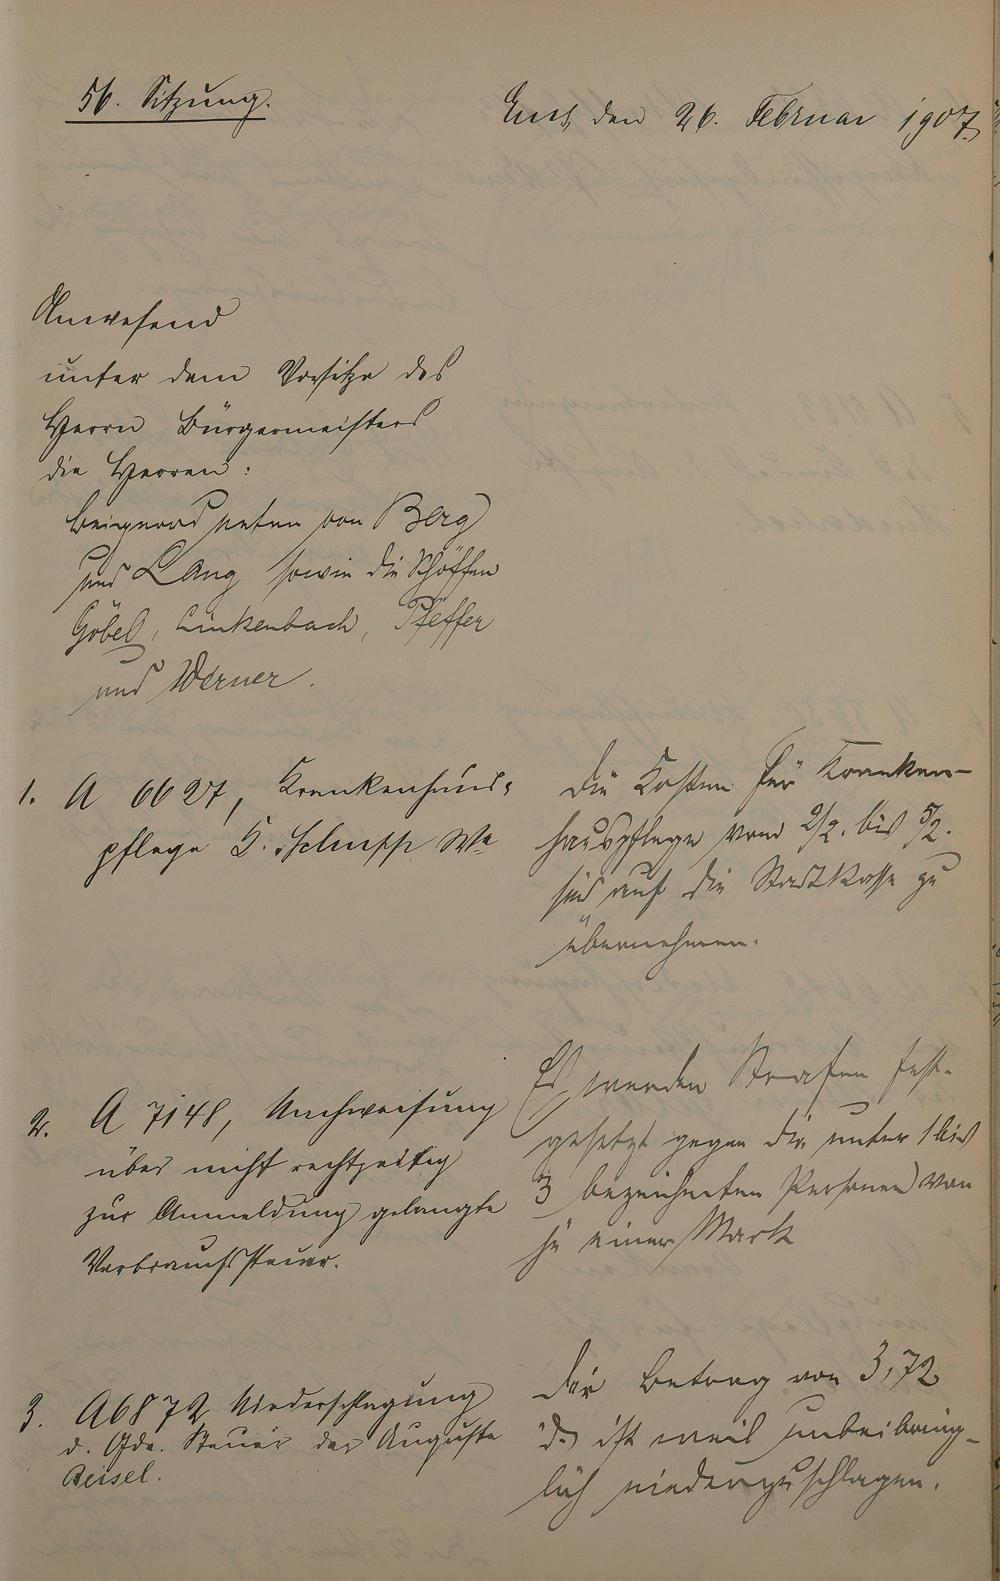 56. Sitzung.
Ems, den 26. Februar 1907.
Anwesend
unter dem Vorsitze des
Herrn Bürgermeisters
die Herren:
Beigeordneten von Berg
und Lang sowie die Schöffen
Göbel, Linkenbach, Pfeffer
und Werner.
1. A 6627, Krankenhaus-
pflege K. Schupp Wwe
Die Kosten für Kranken-
hauspflege vom 2/2. bis 5/2.
sind auf die Stadtkasse zu
übernehmen.
2. A 7148, Nachweisung
über nicht rechtzeitig
zur Anmeldung gelangte
Verbrauchssteuer.
Es werden Strafen fest-
gesetzt gegen die unter 1 bis
3 bezeichneten Personen von
je einer Mark
3. A 6872 Niederschlagung
d. Gde. Steuer der Auguste
Beisel.
Der Betrag von 3,72
ist weil unbeibring-
lich niederzuschlagen.